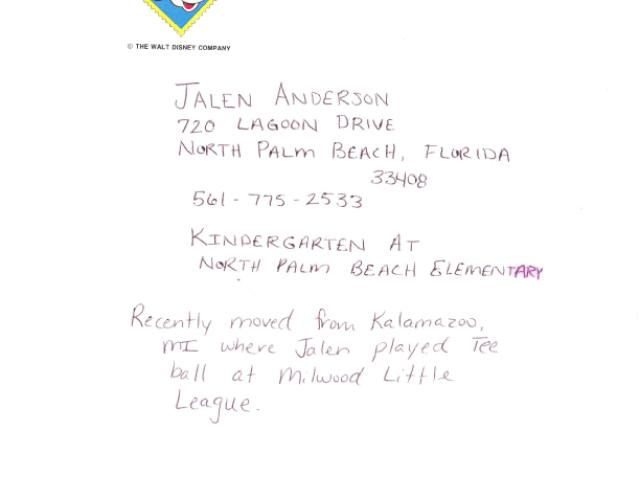 © THE WALT DISNEY COMPANY
JALEN ANDERSON
720 LAGOON DRIVE
NORTH PALM BEACH, FLORIDA
33408
561-775-2533
KINDERGARTEN AT
NORTH PALM BEACH ELEMENTARY
Recently moved from Kalamazoo,
MI where Jalen played Tee
ball at Milwood Little
League.